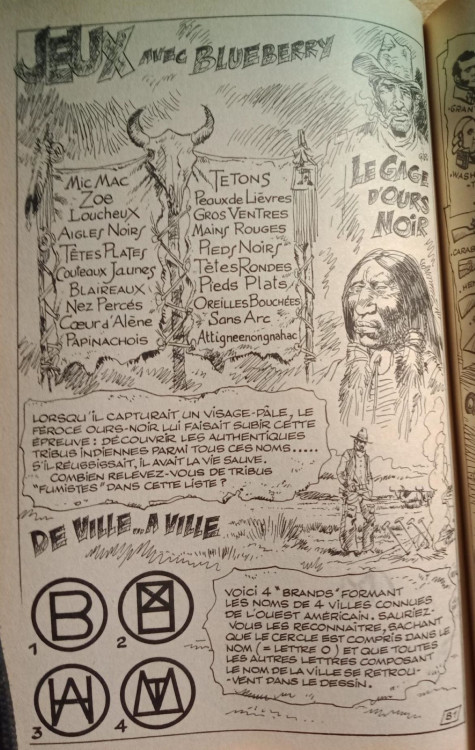 JEUX AVEC BLUEBERRY
LE GAGE
D'OURS
NOIR
MIC MAC
ZOE
LOUCHEUX
AIGLES NOIRS
TÊTES PLATES
COUTEAUX JAUNES
BLAIREAUX
NEZ PERCÉS
CŒUR D'ALÈNE
PAPINACHOIS
TETONS
PEAUX DE LIÈVRES
GROS VENTRES
MAINS ROUGES
PIEDS NOIRS
TÊTES RONDES
PIEDS PLATS
OREILLES BOUCHÉES
SANS ARC
ATTIGNEENONGNAHAC
LORSQU'IL CAPTURAIT UN VISAGE-PÂLE, LE
FÉROCE OURS-NOIR LUI FAISAIT SUBIR CETTE
ÉPREUVE : DÉCOUVRIR LES AUTHENTIQUES
TRIBUS INDIENNES PARMI TOUS CES NOMS.....
S'IL RÉUSSISSAIT, IL AVAIT LA VIE SAUVE.
COMBIEN RELEVEZ-VOUS DE TRIBUS
"FUMISTES" DANS CETTE LISTE ?
DE VILLE... A VILLE
1
2
3
4
VOICI 4 "BRANDS" FORMANT
LES NOMS DE 4 VILLES CONNUES
DE L'OUEST AMÉRICAIN. SAURIEZ-
VOUS LES RECONNAÎTRE, SACHANT
QUE LE CERCLE EST COMPRIS DANS LE
NOM (= LETTRE O) ET QUE TOUTES
LES AUTRES LETTRES COMPOSANT
LE NOM DE LA VILLE SE RETROU-
-VENT DANS LE DESSIN.